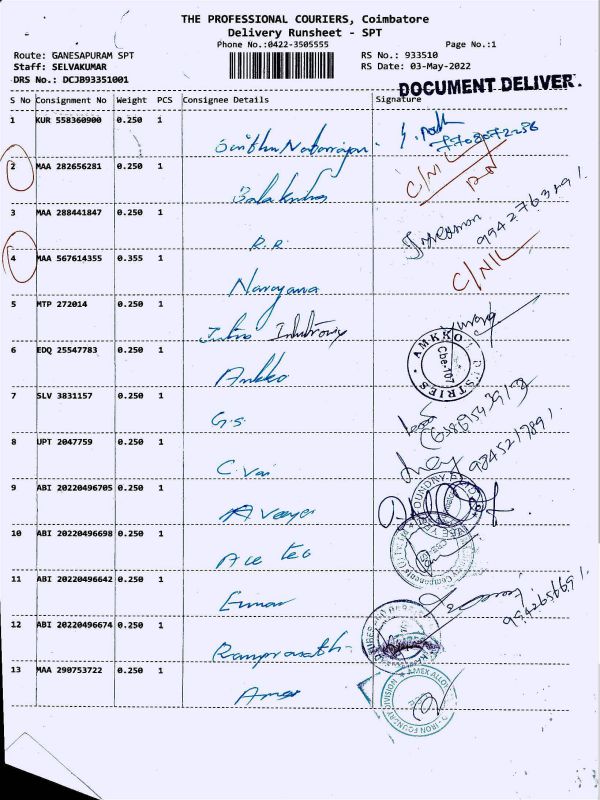 THE PROFESSIONAL COURIERS, Coimbatore
Delivery Runsheet - SPT
Phone No.:0422-3505555 Page No.:1
Route: GANESAPURAM SPT RS No.: 933510
Staff: SELVAKUMAR RS Date: 03-May-2022
DRS No.: DCJB93351001
DOCUMENT DELIVER.
S No Consignment No Weight PCS Consignee Details Signature
1 KUR 558360900 0.250 1
7708072258
2 MAA 282656281 0.250 1
C/N/L
3 MAA 288441847 0.250 1
R.R.
4 MAA 567614355 0.355 1
Narayana C/N/L
5 MTP 272014 0.250 1
6 EDQ 25547783 0.250 1
Amkko
AMKKO INDUSTRIES
Cbe-107
7 SLV 3831157 0.250 1
G.S.
8 UPT 2047759 0.250 1
C. Vai
9 ABI 20220496705 0.250 1
10 ABI 20220496698 0.250 1
Ace Tec
11 ABI 20220496642 0.250 1
12 ABI 20220496674 0.250 1
Ramprasath
13 MAA 290753722 0.250 1
Amex
AMEX ALLOYS
IRON FOUNDRY DIVISION